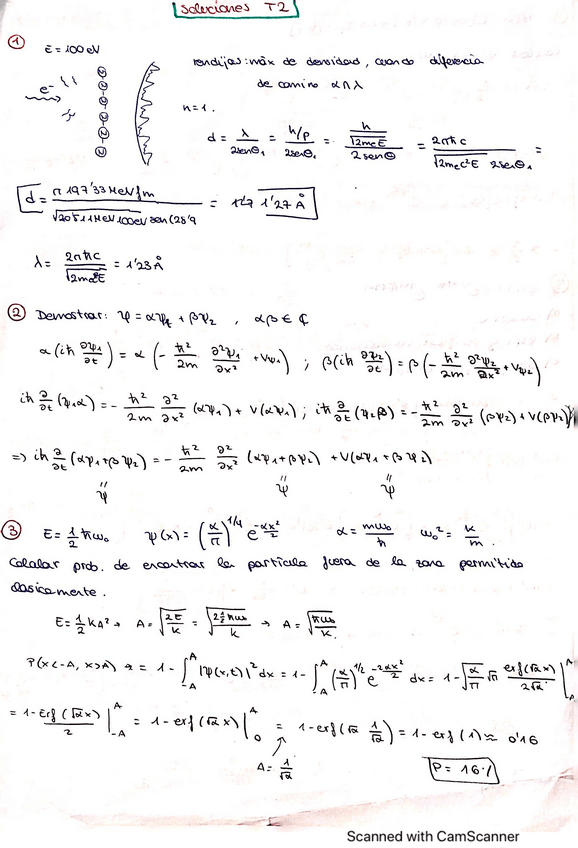 Soluciones T2
① E = 100 eV
rendijas: máx de densidad, cuando diferencia
de camino α n λ
e⁻
n = 1.
d = λ/(2senθ₁) = (h/p)/(2senθ₁) = (h/√(2mcE))/(2senθ) = 2πħc/(√(2mₑc²E) 2senθ₁) =
d = π 197'33 MeV fm / √(2 0'511 MeV 100eV) sen(28'9 = 1'27 Å
λ = 2πħc/√(2mc²E) = 1'23 Å
② Demostrar: ψ = αψ₁ + βψ₂ , αβ ∈ ₵
α(iħ ∂ψ₁/∂t) = α(-ħ²/2m ∂²ψ₁/∂x² + Vψ₁) ; β(iħ ∂ψ₂/∂t) = β(-ħ²/2m ∂²ψ₂/∂x² + Vψ₂)
iħ ∂/∂t (ψ₁α) = -ħ²/2m ∂²/∂x² (αψ₁) + V(αψ₁) ; iħ ∂/∂t (ψ₂β) = -ħ²/2m ∂²/∂x² (βψ₂) + V(βψ₂)
=> iħ ∂/∂t (αψ₁ + βψ₂) = -ħ²/2m ∂²/∂x² (αψ₁ + βψ₂) + V(αψ₁ + βψ₂)
" ψ " ψ " ψ
③ E = 1/2 ħω₀ ψ(x) = (α/π)^1/4 e^(-αx²/2) α = mω₀/ħ ω₀² = k/m.
Calcular prob. de encontrar la partícula fuera de la zona permitida
clásicamente.
E = 1/2 kA² → A = √(2E/k) = √(2 1/2 ħω₀/k) → A = √(ħω₀/k)
P(x<-A, x>A) = 1 - ∫_-A^A |ψ(x,t)|² dx = 1 - ∫_-A^A (α/π)^1/2 e^(-2αx²/2) dx = 1 - √(α/π) √π erf(√α x)/(2√α) |_-A^A
= 1 - Erf(√α x)/2 |_-A^A = 1 - erf(√α x) |_0^A = 1 - erf(√α 1/√α) = 1 - erf(1) ≈ 0'16
A = 1/√α
P = 16%
Scanned with CamScanner